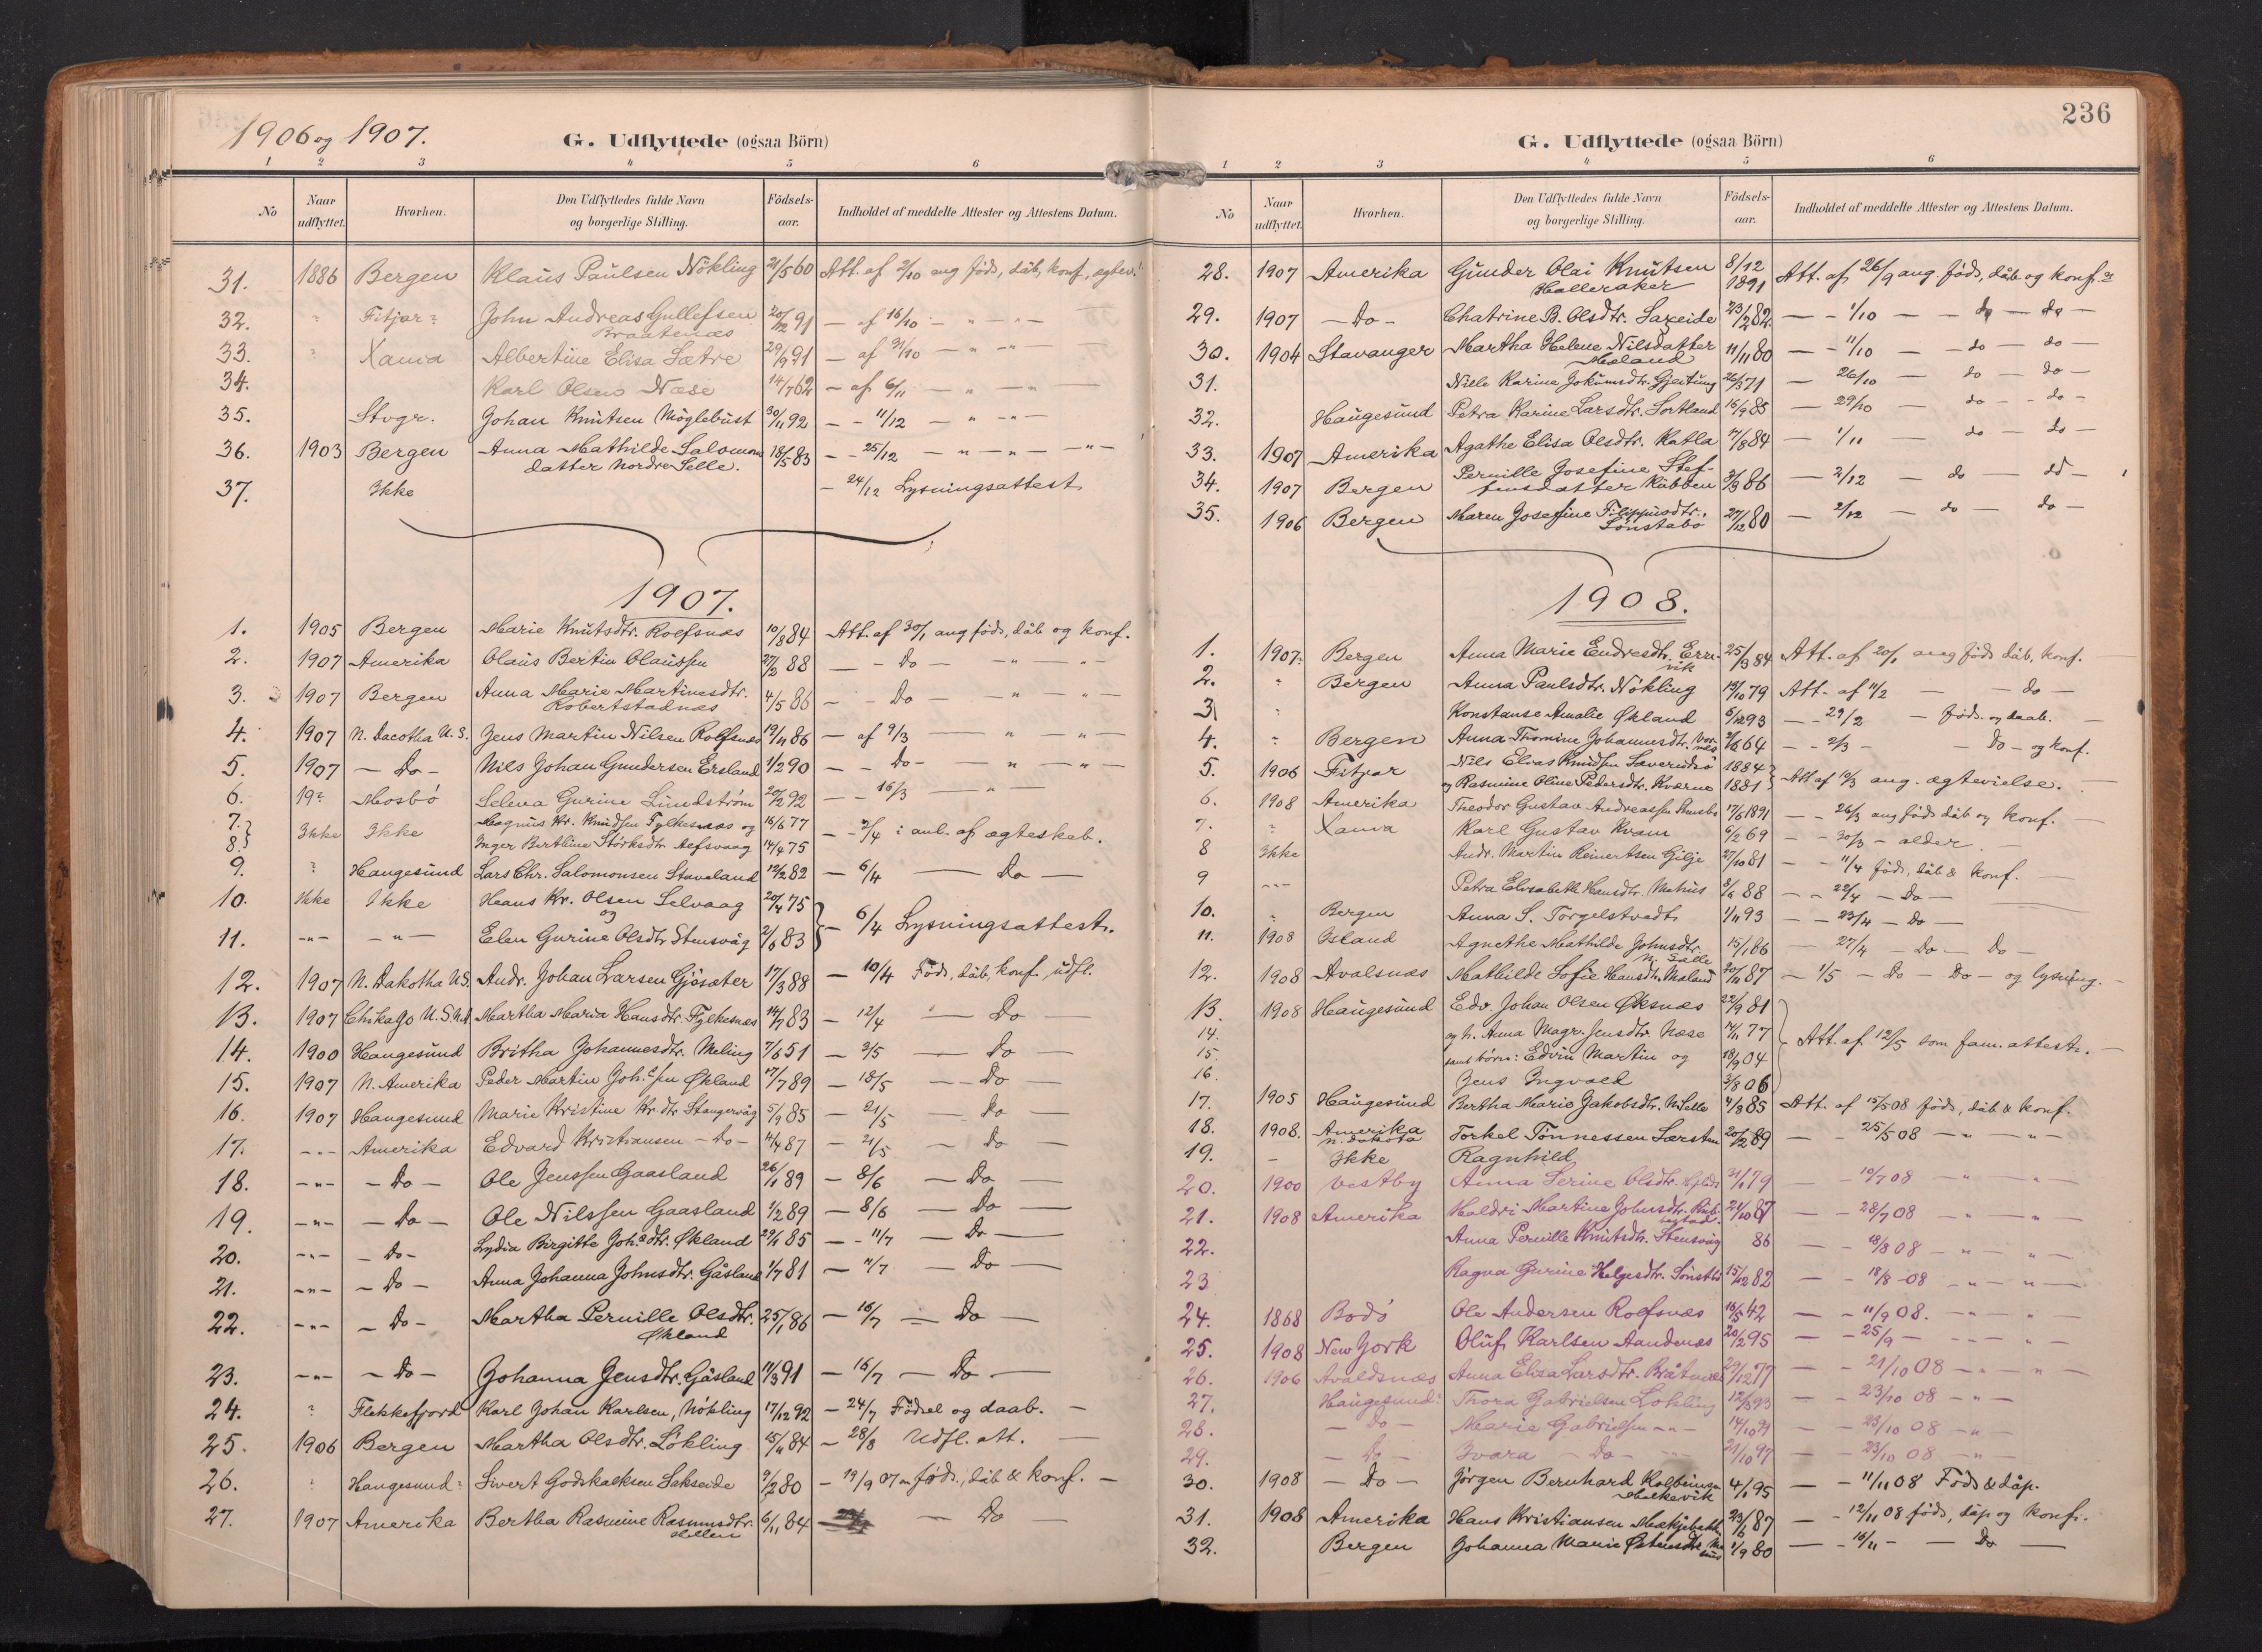 1906 og 1907.
G. Udflyttede (ogsaa Börn)
1 2 3 4 5 6
No Naar udflyttet. Hvorhen. Den Udflyttedes fulde Navn og borgerlige Stilling. Födsels-aar. Indholdet af meddelte Attester og Attestens Datum.
31. 1886 Bergen Klaus Paulsen Nökling 21/5 60 Att. af 2/10 ang föds, dåb, konf, egtev.
32. " Fitjar? John Andreas Gullefsen 20/12 91 — af 16/10 — " — " —
Braatenæs
33. " Xania Albertine Elisa Sætre 29/9 91 — af 31/10 — " — " —
34. Karl Olsen Næse 14/7 62 — af 6/11 — " — " —
35. Stvgr. Johan Knutsen Möglebust 30/11 92 — - 11/12 — " — " —
36. 1903 Bergen Anna Mathilde Salomons 18/5 83 — - 25/12 — " — " — " —
datter Nordre Selle.
37. Ikke — 24/12 Lysningsattest
1907.
1. 1905 Bergen Marie Knutsdtr. Roefsnæs 10/8 84 Att. af 30/1 ang föds, dåb og konf.
2. 1907 Amerika Olaus Bertin Olaussen 27/2 88 — - Do — " — " —
3. 1907 Bergen Anna Marie Martinesdtr. 4/5 86 — - Do — " — " —
Robertstadnæs
4. 1907 N. Dacotha U. S. Jens Martin Nilsen Rolfsnes 19/11 86 — af 9/3 — " — " —
5. 1907 — Do — Nils Johan Gundersen Ersland 1/2 90 — - Do — " — " —
6. 19? Mosbö Selena Gurine Lindström 20/2 92 — - 16/3 — " —
7. Ikke Ikke Magnus Kr. Knudsen Fylkesnæs og 16/6 77 — - 2/4 i anl. af ægteskab.
8. Inger Bertline Störksdtr Aefsvaag 14/4 75
9. " Haugesund Lars Chr. Salomonsen Staveland 19/2 82 — 6/4 — Do —
10. Ikke Ikke Hans Kr. Olsen Selvaag 20/4 75
og
11. -"- -"- Elen Gurine Olsdtr Stensvåg 2/6 83 — 6/4 Lysningsattest.
12. 1907 N. Dakotha U.S. Andr. Johan Larsen Gjösæter 17/3 88 — 10/4 Föds, dåb, konf, udfl.
13. 1907 Chikago U.S.N.A. Martha Maria Hansdtr. Fylkesnæs 14/7 83 — 12/4 — Do —
14. 1900 Haugesund Britha Johannesdtr. Meling 7/6 51 — 3/5 — Do —
15. 1907 N. Amerika Peder Martin Joh.ssen Økland 17/7 89 — 18/5 — Do —
16. 1907 Haugesund Marie Kristine Kr. dtr Stangervåg 5/9 85 — 21/5 — Do —
17. -"- Amerika Edvard Kristiansen — Do — 4/4 87 — 21/5 — Do —
18. -"- — Do — Ole Jenssen Gaasland 26/1 89 — 8/6 — Do —
19. -"- — Do — Ole Nilssen Gaasland 1/2 89 — 8/6 — Do —
20. -"- — Do — Lydia Birgitte Joh.s dtr. Økland 29/1 85 — - 11/7 — Do —
21. -"- — Do — Anna Johanna Johnsdtr. Gåsland 1/7 81 — 11/7 — Do —
22. -"- — Do — Martha Pernille Olsdtr. 25/1 86 — 16/7 — Do —
Økland
23. -"- — Do — Johanna Jensdtr. Gåsland 11/3 91 — 16/7 — Do —
24. ? Flekkefjord Karl Johan Karlsen, Nökling 17/12 92 — 24/7 Födsel og daab. —
25. 1906 Bergen Martha Olsdtr. Lökling 15/11 84 — 28/8 Udfl. att. —
26. " Haugesund? Sivert Godskalksen Sakseide 9/2 80 — 19/9 07 föds, dåb & konf. —
27. 1907 Amerika Bertha Rasmine Rasmusdtr. 6/11 84 — Do —
236
G. Udflyttede (ogsaa Börn)
1 2 3 4 5 6
No Naar udflyttet. Hvorhen. Den Udflyttedes fulde Navn og borgerlige Stilling. Födsels-aar. Indholdet af meddelte Attester og Attestens Datum.
28. 1907 Amerika Gunder Olai Knutsen 8/12 1891 Att. af 26/9 ang. föds, dåb og konf.
Halleraker
29. 1907 — Do — Chatrine B. Olsdtr. Saxeide 23/2 82 — - 1/10 — do — do —
30. 1904 Stavanger Martha Helene Nilsdatter 11/11 80 — - 11/10 — do — do —
Mæland
31. Nille Karine Jokumsdtr. Gjeitung 26/3 71 — 26/10 — do — do —
32. Haugesund Petra Karine Larsdtr. Sortland 16/9 85 — 29/10 — do — do —
33. 1907 Amerika Agathe Elisa Olsdtr. Katla 17/8 84 — 1/11 — do — do —
34. 1907 Bergen Pernille Josefine Stef- 3/3 86 — 2/12 — do — do —
fensdatter Kubben
35. 1906 Bergen Maren Josefine Filippusdtr. 27/12 80 — 2/12 — do — do —
Sönstabö
1908.
1. 1907 Bergen Anna Marie Endresdtr. Ervi- 25/3 84 Att. af 20/1 ang föds dåb, konf. —
vik
2. " Bergen Anna Paulsdtr. Nökling 19/10 79 Att. af 11/2 — do —
3 " Konstanse Amalie Økland 6/12 93 — - 29/2 — föds. og daab. —
4. " Bergen Anna Thomine Johannesdtr. Vornes 2/6 64 — - 2/3 — Do — og konf.
5. 1906 Fitjar Nils Elias Knudsen 1884
og Rasmine Oline Pedersdtr. Kværne 1881 Att af 19/3 ang. ægtevielse. —
6. 1908 Amerika Theodor Gustav Andreassen Stensbö 17/6 1891 — - 26/3 ang föds dåb og konf. —
7. " Xania Karl Gustav Kvam 6/2 69 — - 30/3 — alder. —
8 Ikke Andr. Martin Reinertsen Gilje 27/10 81 — - 11/4 föds, dåb & konf. —
9 -"- Petra Elisabeth Hansdtr. Mehus 3/6 88 — - 22/4 — Do —
10. " Bergen Anna S. Torgelstvedt 1/11 93 — - 23/4 — Do —
11. 1908 Island Agnethe Mathilde Johnsdtr. 15/1 86 — 27/4 — Do — Do —
N. Sælle
12. 1908 Avalsnæs Mathilde Sofie Hansdtr. Maland 20/11 87 — 1/5 — Do — Do — og lysning. —
13. 1908 Haugesund Edv. Johan Olsen Øksnæs 22/9 81
14. og h. Anna Magr. Jensdtr. Næse 14/11 77
15. samt börn: Edvin Martin og 18/9 04 Att. af 12/5 som fam. attest. —
16. Jens Ingvald 3/8 06
17. 1905 Haugesund Bertha Marie Jakobsdtr. N. Selle 4/3 85 Att. af 15/5 08 föds, dåb & konf.
18. 1908. Amerika Torkel Tönnessen Særsten 20/2 89 — - 25/5 08 — " — " —
N. Dakota
19. - Ikke Ragnhild
20. 1900 Vestby Anna Serine Olsdtr. 31/1 79 — - 10/7 08 — " — " —
21. 1908 Amerika Haldri Martine Johnsdtr. 24/10 87 — - 28/7 08 — " — " —
22. Anna Pernille Knutsdtr. Stensvåg 86 — - 18/8 08 — " — " —
23 Ragna Gurine Helgesdtr. Sönstbö 15/12 82 — - 18/8 -08 — " — " —
24. 1868 Bodö Ole Andersen Rolfsnæs 16/5 42 — - 11/9 08. — " — " —
25. 1908 New York Oluf Karlsen Aandenæs 20/12 95 — - 25/9 — " — " —
26. 1906 Avaldsnæs Anna Elisa Larsdtr. Bråtenæs 29/12 77 — - 21/10 08 — " — " —
27. Haugesund? Thora Gabrielsen Lökling 12/3 93 — - 23/10 08 — " —
28. — Do — Marie Gabrielsen -"- 14/10 — - 23/10 08 — " —
29. — Do — Ivara — Do — 21/10 97 — - 23/10 08 — " —
30. 1908 — Do — Jörgen Bernhard Kolbeinsen 4/1 95 — - 11/11 08 Föds & dåp.
31. 1908 Amerika Hans Kristiansen 23/6 87 — - 12/11 08 föds, dåp og konf.
32. Bergen Johanna Marie 1/9 80 — - 16/11 — Do —